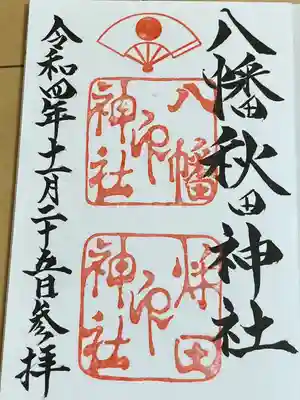 八幡秋田神社
八幡
神社
印
秋田
神社
印
令和四年十一月二十五日参拝